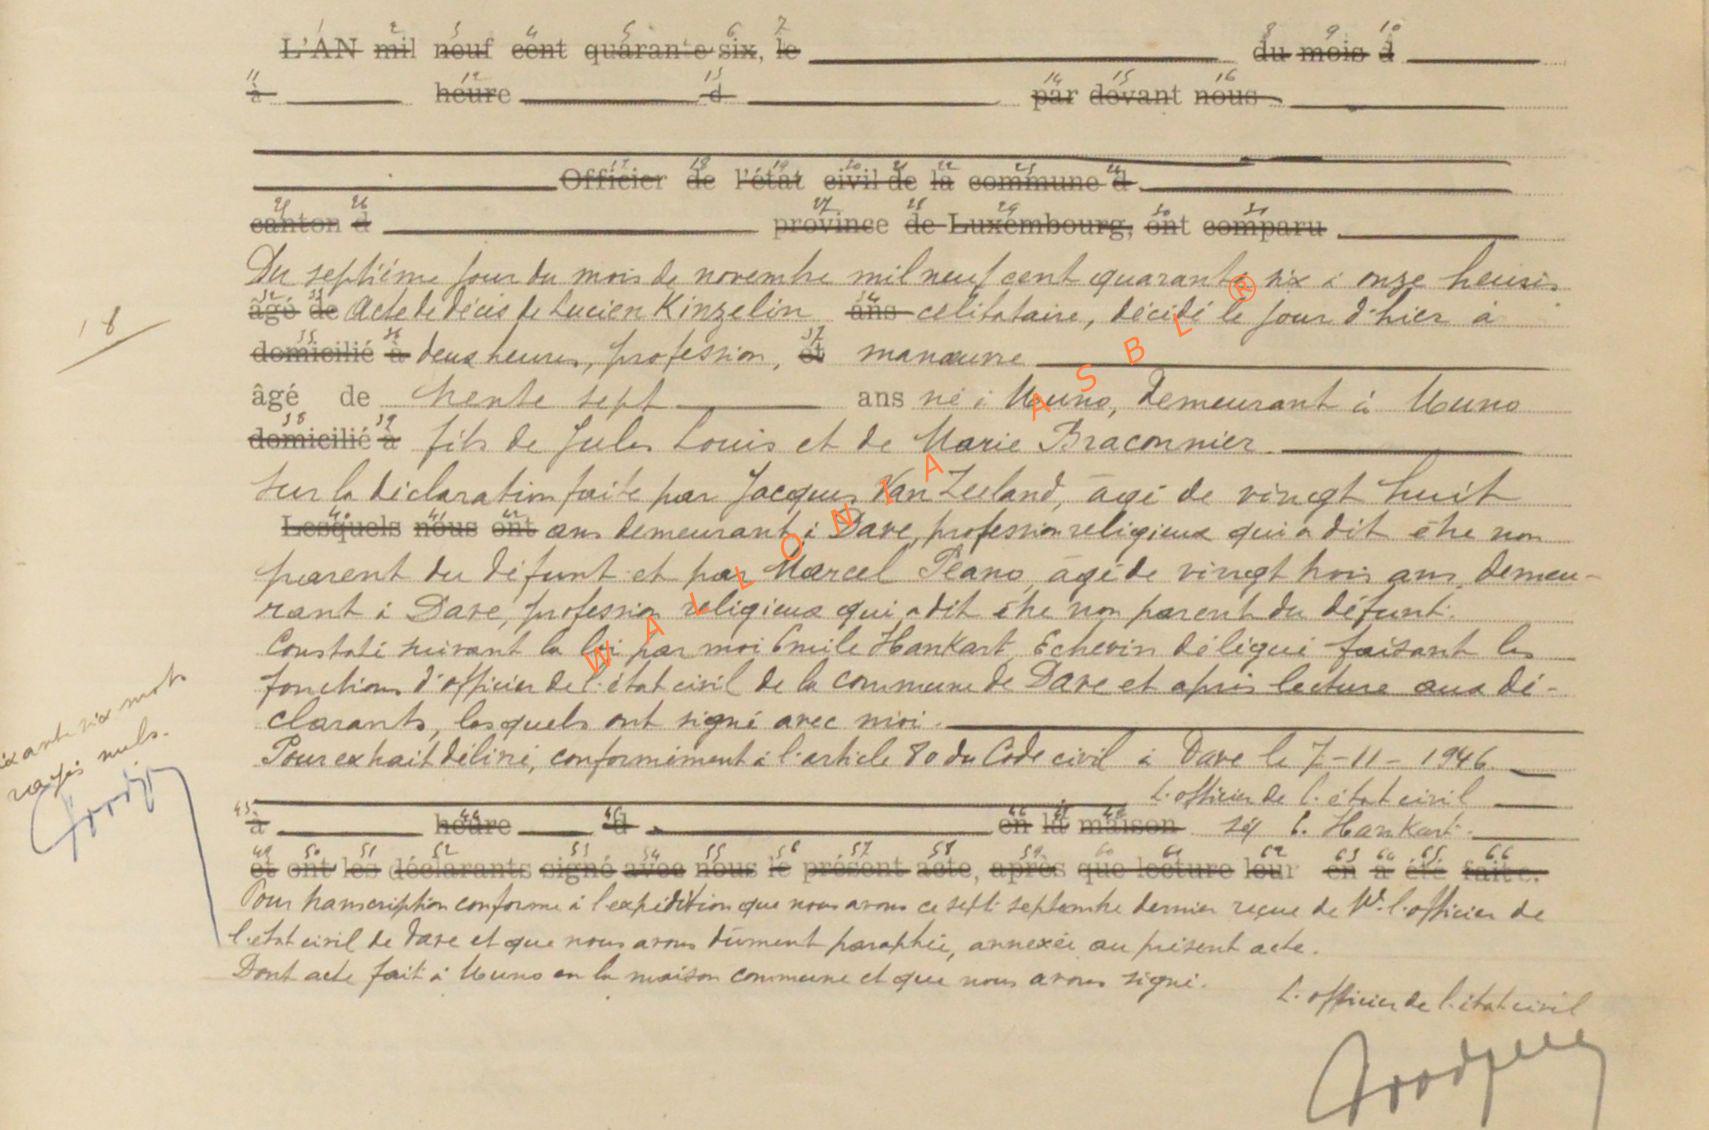 L'AN mil neuf cent quarante-six, le du mois d
à heure d par devant nous
Officier de l'état civil de la commune d
canton d province de Luxembourg, ont comparu
Du septième jour du mois de novembre mil neuf cent quarante six à onze heures
âgé de Acte de décès de Lucien Kinzelin ans célibataire, décédé le jour d'hier à
domicilié à deux heures, profession, et manœuvre
18
âgé de trente sept ans né à Muno, demeurant à Muno
domicilié à fils de Jules Louis et de Marie Braconnier
sur la déclaration faite par Jacques Van Zeeland, âgé de vingt huit
Lesquels nous ont ans demeurant à Dave, profession religieux qui a dit être non
parent du défunt et par Marcel Peano, âgé de vingt trois ans, demeu-
rant à Dave, profession religieux qui a dit être non parent du défunt.
Constaté suivant la loi par moi Emile Hankart, Echevin délégué faisant les
fonctions d'officier de l'état civil de la commune de Dave et après lecture aux dé-
clarants, lesquels ont signé avec moi.
Pour extrait délivré, conformément à l'article 80 du Code civil à Dave le 7-11-1946
L'officier de l'état civil
à heure d en la maison sé) E. Hankart.
et ont les déclarants signé avec nous le présent acte, après que lecture leur en a été faite.
Pour transcription conforme à l'expédition que nous avons ce sept septembre dernier reçue de Mr l'officier de
l'état civil de Dave et que nous avons dûment paraphée, annexée au présent acte.
Dont acte fait à Muno en la maison commune et que nous avons signé.
L'officier de l'état civil
six mots
rayés nuls.
WALLONIA ASBL ®